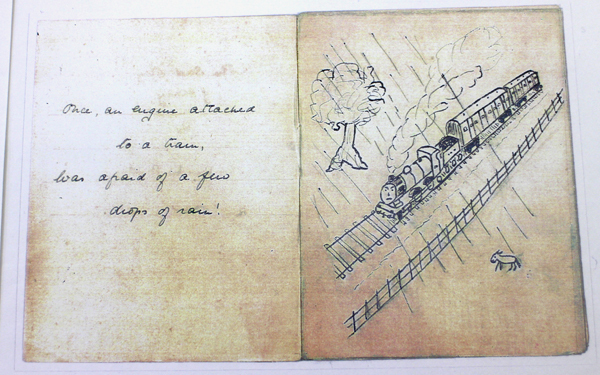 Once, an engine attached
to a train,
Was afraid of a few
drops of rain!